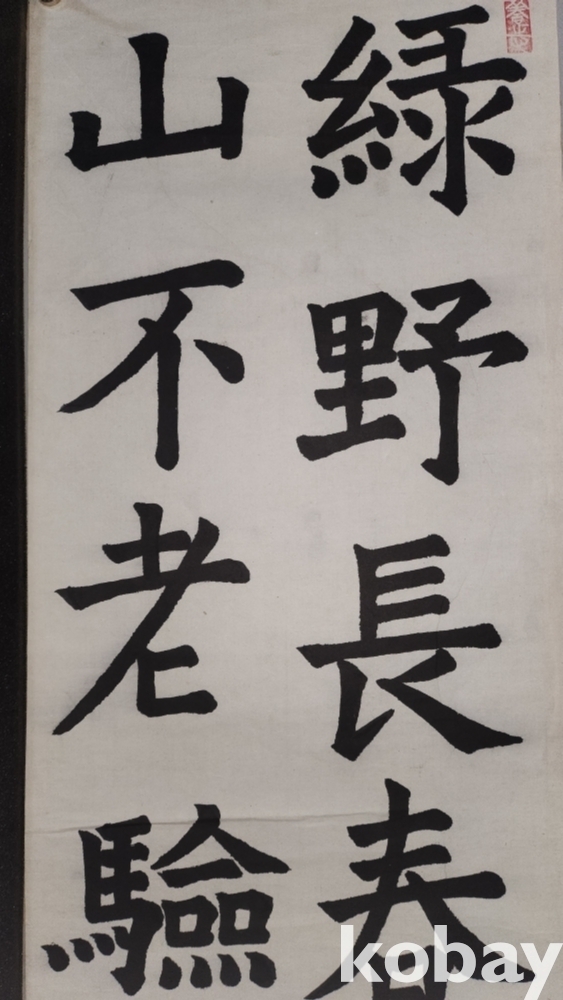 綠野長春
山不老驗
kobay